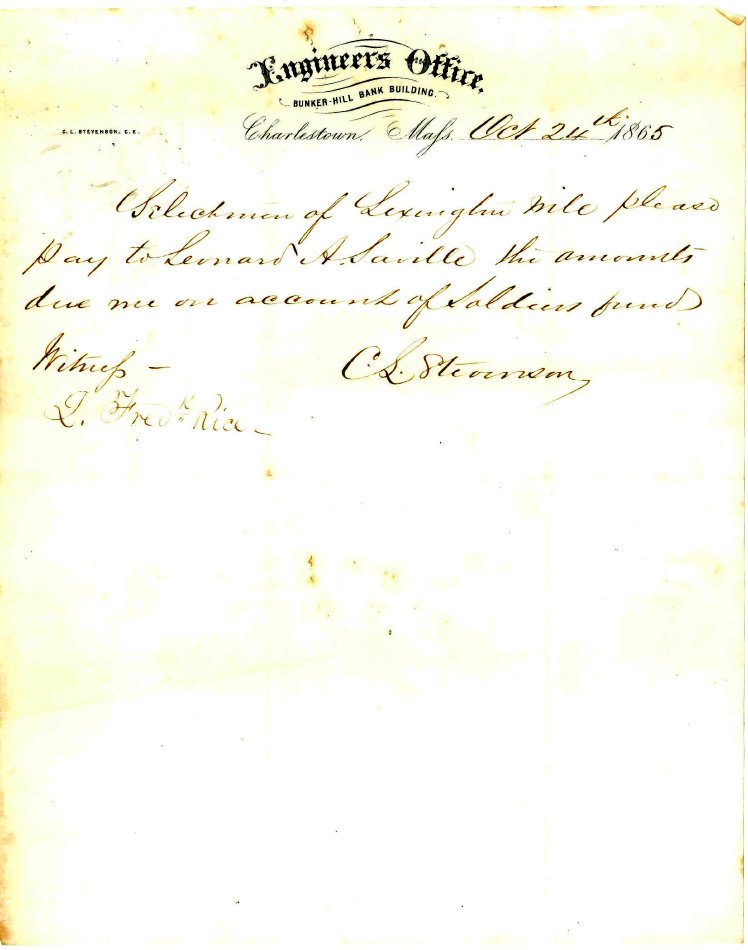 Engineers Office.
BUNKER-HILL BANK BUILDING.
C. L. STEVENSON, C. E.
Charlestown, Mass. Oct 24th 1865
Selectmen of Lexington will please
pay to Leonard A. Saville the amounts
due me on account of Soldiers fund
Witness — C. L. Stevenson
L. Fredk Rice —